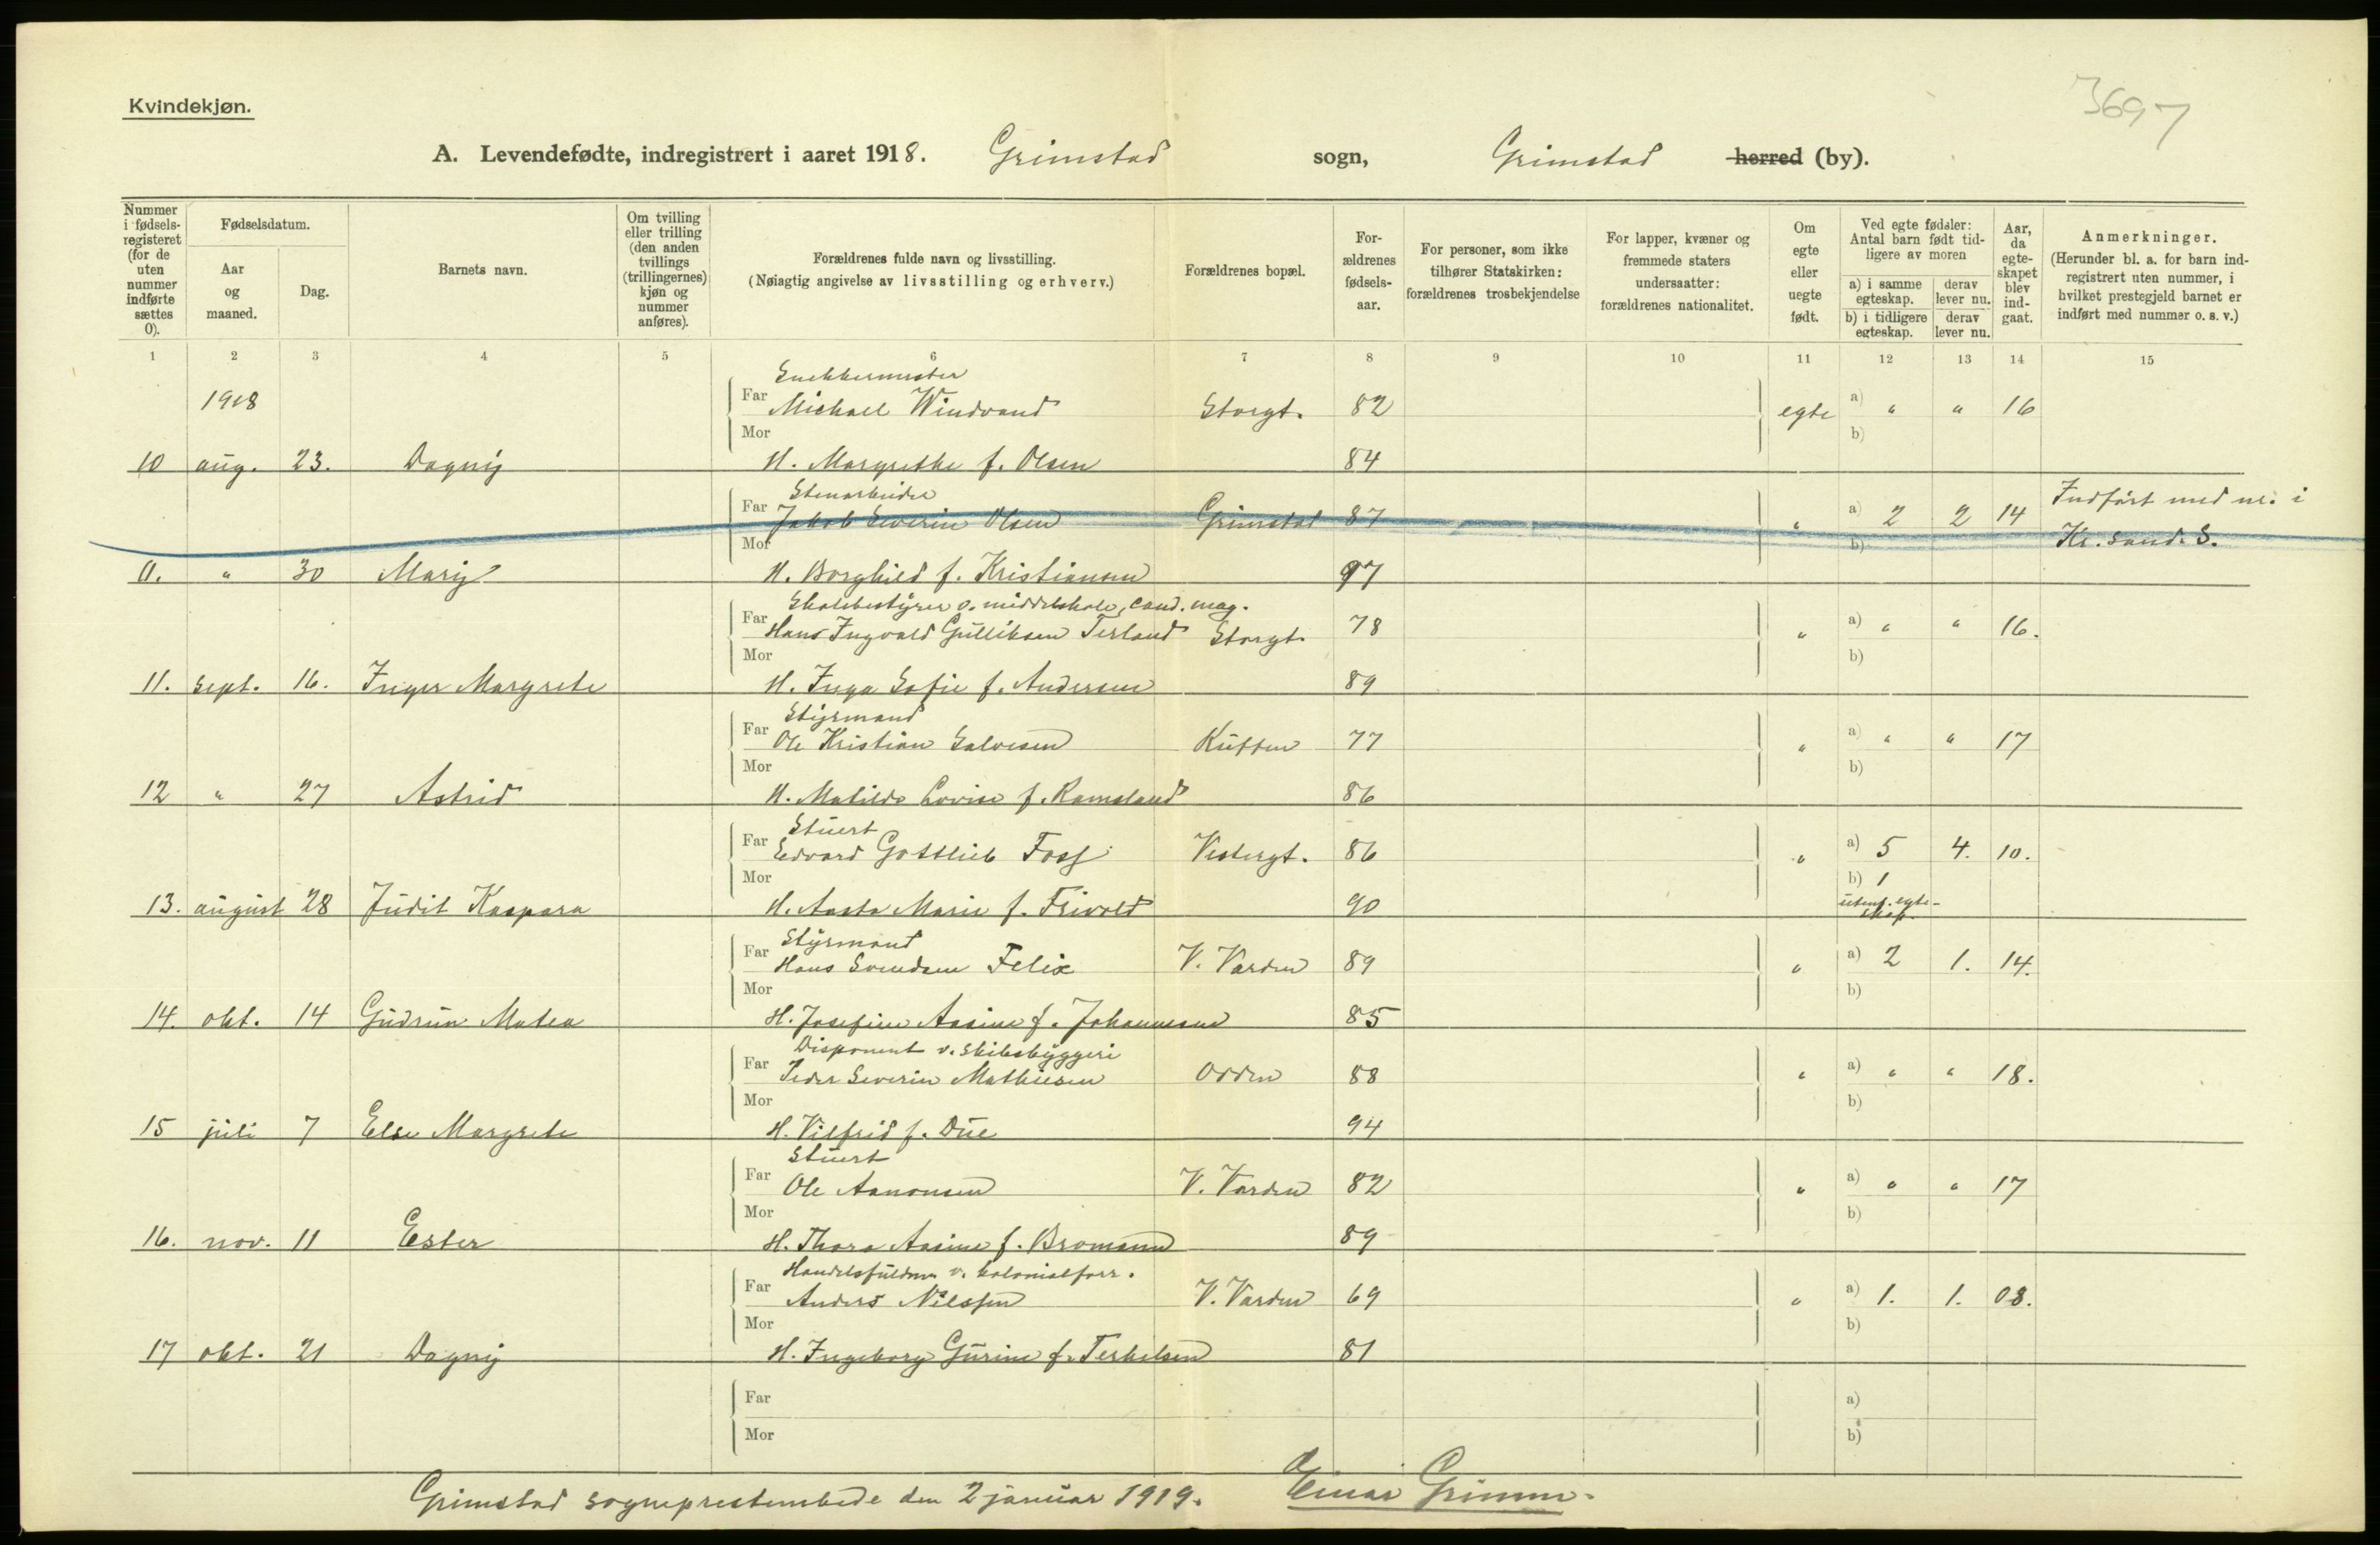 Kvindekjøn.
3697
A. Levendefødte, indregistrert i aaret 1918. Grimstad sogn, Grimstad herred (by).
Nummer i fødselsregisteret (for de uten nummer indførte sættes 0).
Fødselsdatum.
Aar og maaned.
Dag.
Barnets navn.
Om tvilling eller trilling (den anden tvillings (trillingernes) kjøn og nummer anføres).
Forældrenes fulde navn og livsstilling.
(Nøiagtig angivelse av livsstilling og erhverv.)
Forældrenes bopæl.
Forældrenes fødselsaar.
For personer, som ikke tilhører Statskirken: forældrenes trosbekjendelse
For lapper, kvæner og fremmede staters undersaatter: forældrenes nationalitet.
Om egte eller uegte født.
Ved egte fødsler: Antal barn født tidligere av moren
a) i samme egteskap. derav lever nu.
b) i tidligere egteskap. derav lever nu.
Aar, da egteskapet blev indgaat.
Anmerkninger.
(Herunder bl. a. for barn indregistrert uten nummer, i hvilket prestegjeld barnet er indført med nummer o. s. v.)
1 2 3 4 5 6 7 8 9 10 11 12 13 14 15
Snekkermester
1918 Far Michael Windvand Storgt. 82 egte a) " " 16
Mor b)
10 aug. 23. Dagny H. Margrethe f. Olsen 84
Stenarbeider
Far Jakob Severin Olsen Grimstad 87 " a) 2 2 14 Indført med nr. i
Mor b) Kr. sand. S.
0. " 30 Mary H. Borghild f. Kristiansen 97
Skolebestyrer v. middelskole, cand. mag.
Far Hans Ingvald Gulliksen Terland Storgt. 78 " a) " " 16.
Mor b)
11. sept. 16. Inger Margrete H. Inga Sofie f. Andersen 89
Styrmand
Far Ole Kristian Salvesen 77 " a) " " 17
Mor b)
12 " 27 Astrid H. Matilde Lovise f. Ramsland 86
Stuert
Far Edvard Gottlieb Foss Vestergt. 86 " a) 5 4. 10.
Mor b) 1
13. august 28 Judit Kaspara H. Aasta Marie f. Frivold 90 utenf. egteskap.
Styrmand
Far Hans Svendsen Felix V. Varden 89 " a) 2 1. 14.
Mor b)
14. okt. 14 Gudrun Matea H. Josefine Aasine f. Johannesen 85
Disponent v. skibsbyggeri
Far Peder Severin Mathiesen Odden 88 " a) " " 18.
Mor b)
15 juli 7 Else Margrete H. Vilfrid f. Due 94
Stuert
Far Ole Aanonsen V. Varden 82 " a) " " 17
Mor b)
16. nov. 11 Ester H. Thora Aasine f. Bromann 89
Handelsfuldm. v. kolonialforr.
Far Anders Nilssen V. Varden 69 " a) 1. 1. 03.
Mor b)
17 okt. 21 Dagny H. Ingeborg Gurine f. Terkelsen 81
Far a)
Mor b)
Grimstad sogneprestembede den 2 januar 1919. Einar Grimm.